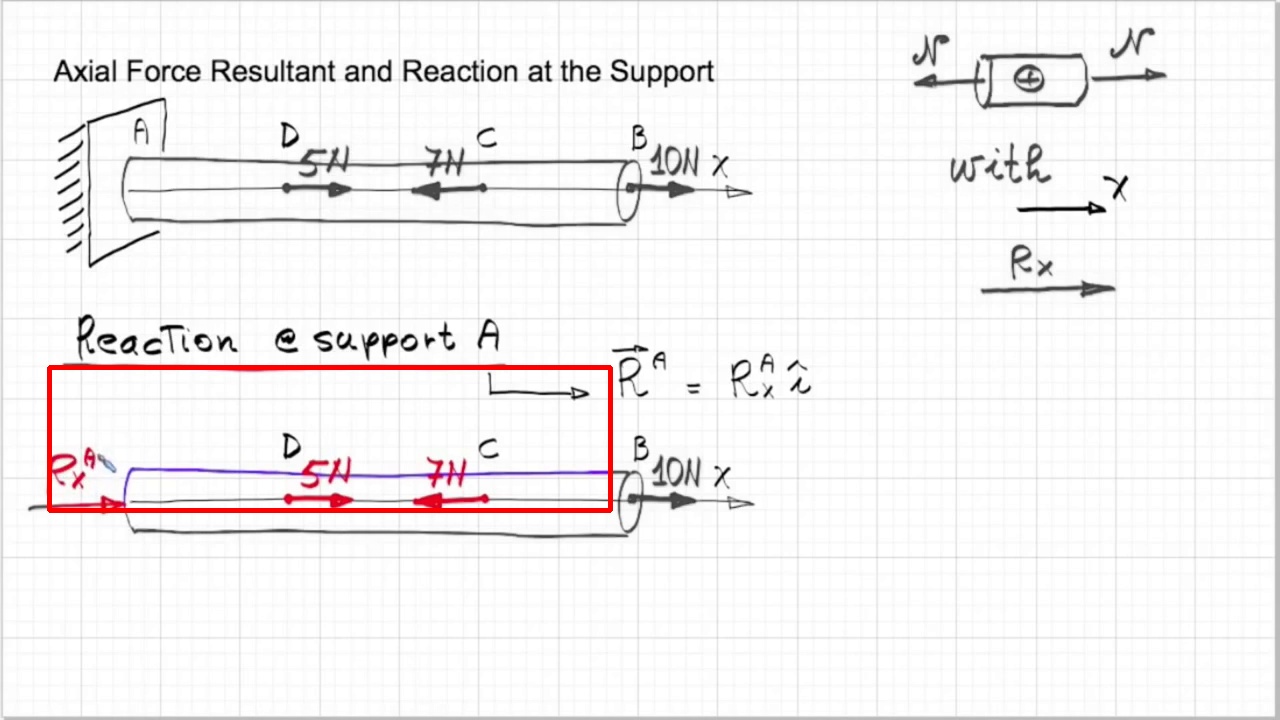 Axial Force Resultant and Reaction at the Support
N N
A D 5N 7N C B 10N x
with
x
Rx
Reaction @ support A
R^A = Rx^A î
Rx^A D 5N 7N C B 10N x